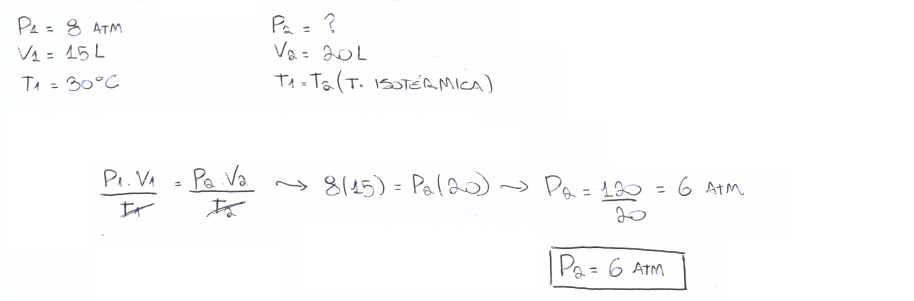 P1 = 8 ATM
V1 = 15 L
T1 = 30°C
P2 = ?
V2 = 20 L
T1 = T2 (T. ISOTÉRMICA)
P1 . V1 / T1 = P2 . V2 / T2 → 8(15) = P2(20) → P2 = 120 / 20 = 6 ATM
P2 = 6 ATM